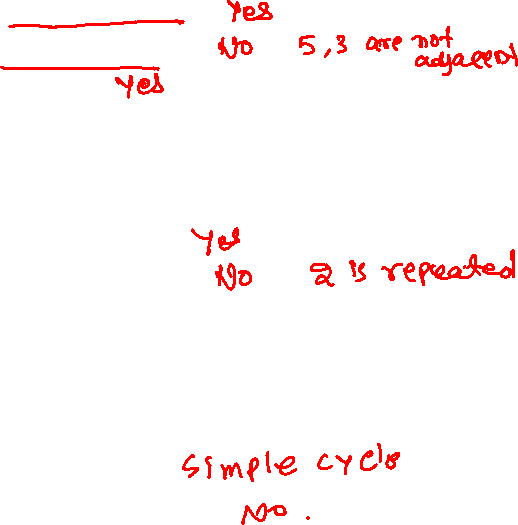 Yes
No 5,3 are not adjacent
Yes
Yes
No 2 is repeated
Simple cycle
No.